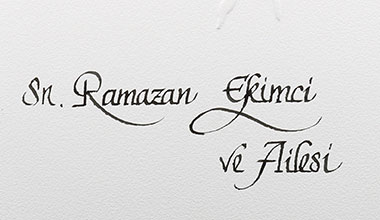 Sn. Ramazan Ekimci
ve Ailesi